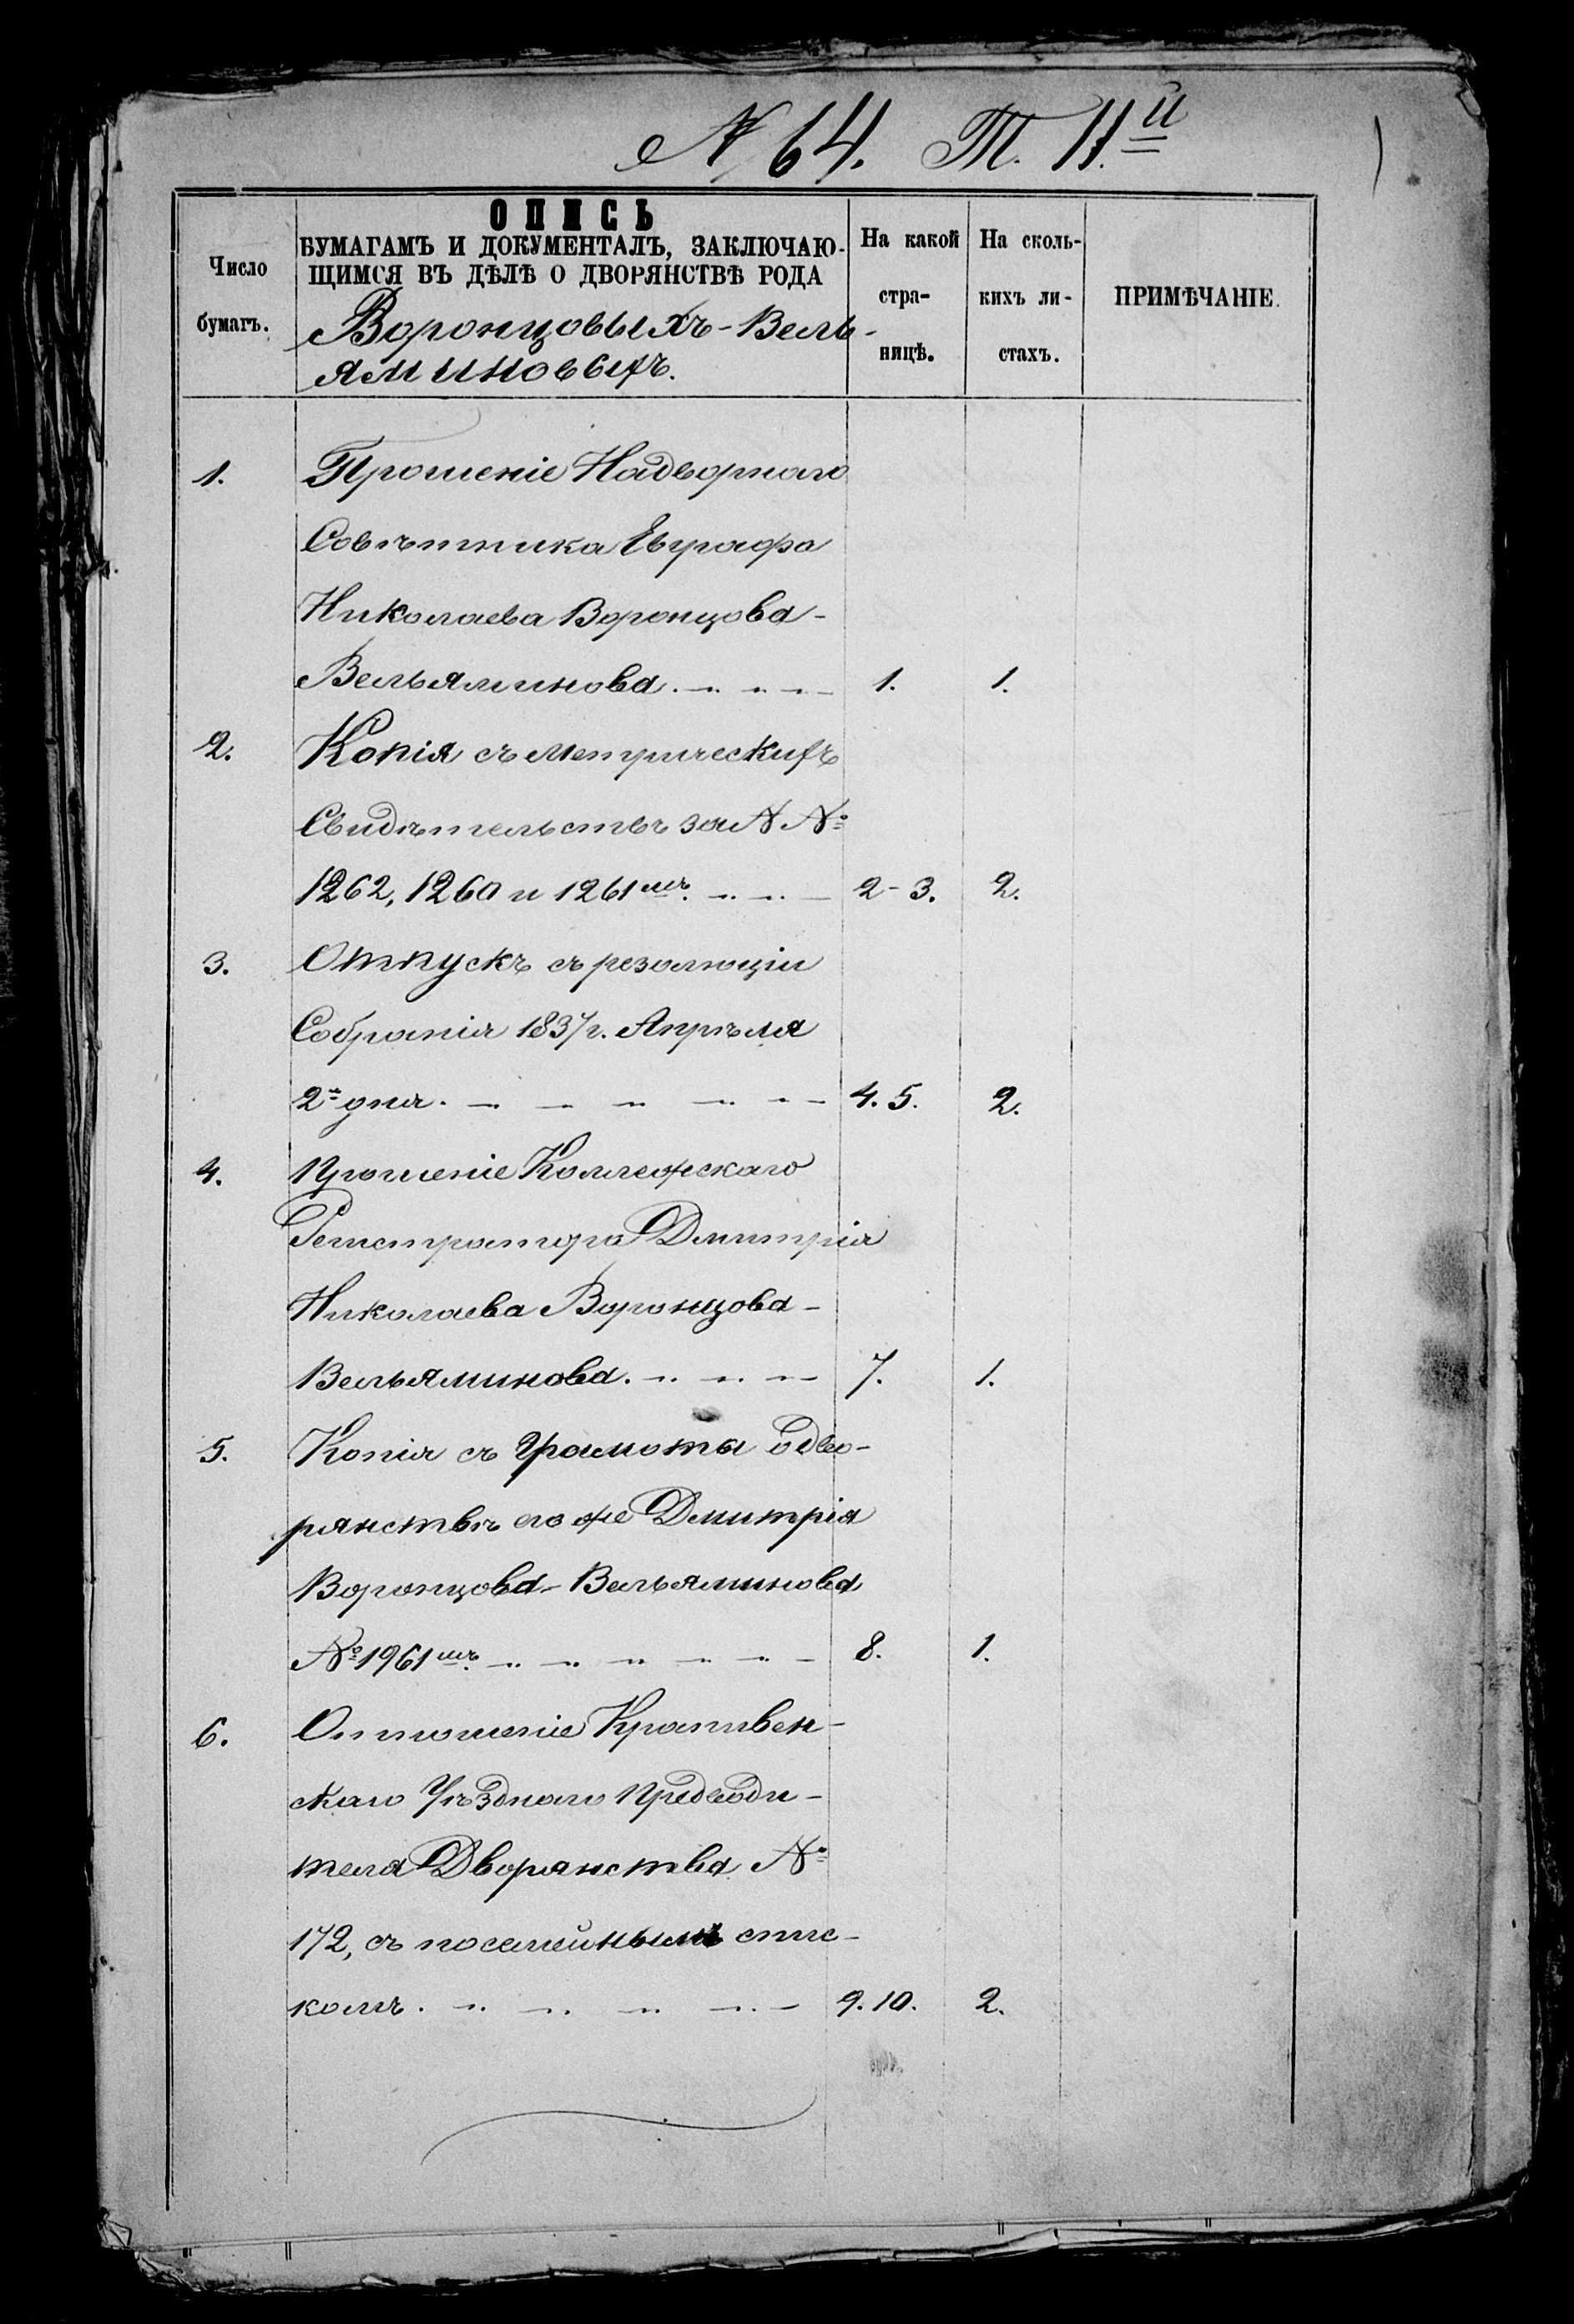 № 64. Т. 11.й
ОПИСЬ
БУМАГАМЪ И ДОКУМЕНТАЛЪ, ЗАКЛЮЧАЮ-
ЩИМСЯ ВЪ ДѢЛѢ О ДВОРЯНСТВѢ РОДА
Воронцовыхъ-Вель-
яминовыхъ.
Число
бумагъ.
На какой
стра-
ницѣ.
На сколь-
кихъ ли-
стахъ.
ПРИМѢЧАНІЕ.
1. Прошеніе Надворнаго
Совѣтника Евграфа
Николаева Воронцова-
Вельяминова. 1. 1.
2. Копія съ метрическихъ
Свидѣтельствъ за № №
1262, 1260 и 1261мъ. 2-3. 2.
3. Отпускъ съ резолюціи
Собранія 1837 г. Апрѣля
2го дня. 4. 5. 2.
4. Прошеніе Коллежскаго
Регистратора Дмитрія
Николаева Воронцова-
Вельяминова. 7. 1.
5. Копія съ Грамоты о дво-
рянствѣ его же Дмитрія
Воронцова-Вельяминова
№ 1961мъ. 8. 1.
6. Отношеніе Крапивен-
скаго Уѣзднаго Предводи-
теля Дворянства №
172, съ посемейнымъ спис-
комъ. 9. 10. 2.